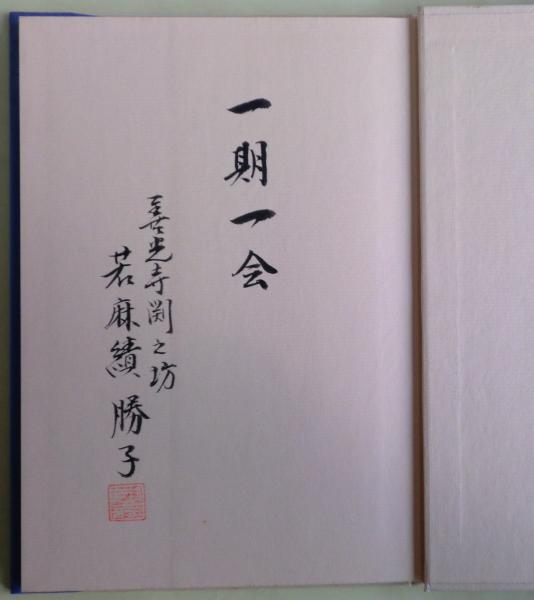 一期一会
善光寺渕之坊
若麻績勝子